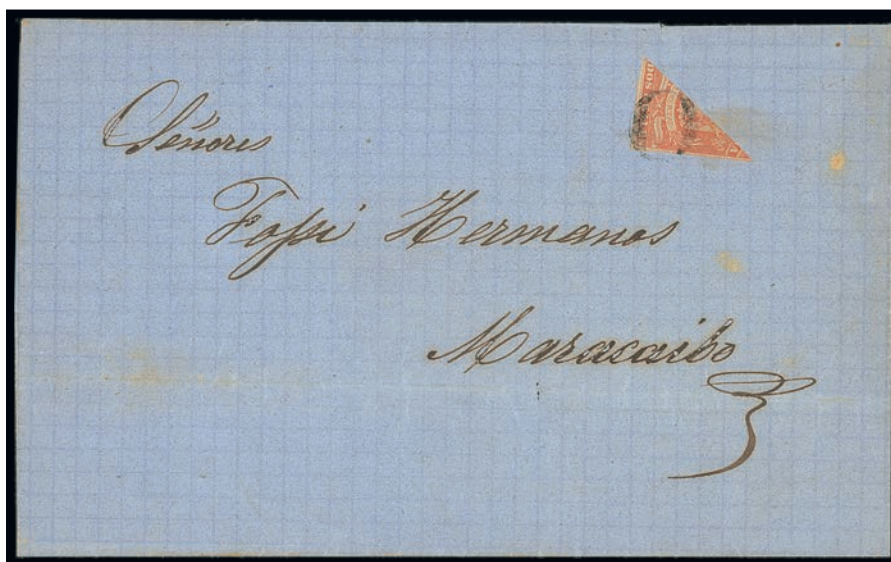 Señores
Fossi Hermanos
Maracaibo